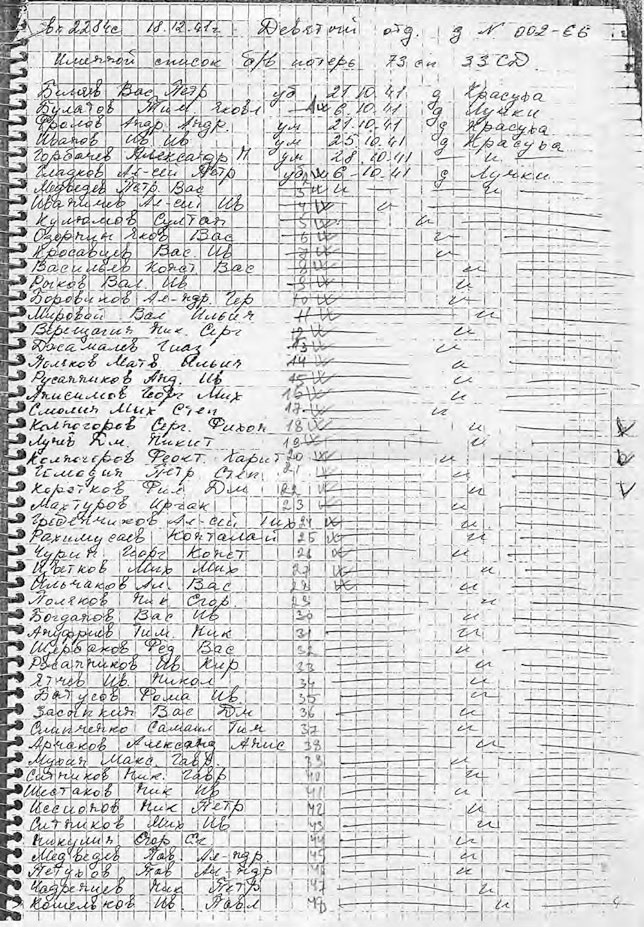 вх 2284с 18.12.41г. Девятый отд. д N 002-ЕБ
Именной список б/в потерь 73 сп 33 СД
Беляев Вас Петр уб 21.10.41 д Красува
Булатов Тим Яковл 6.10.41 д Лучки
Фролов Андр. Андр. ум 21.10.41 д Красува
Иванов Ив Ив ум 25.10.41 д Красува
Горбачев Александр Н ум 28.10.41 и
Гладков Ал-сей Петр уб 6-10.41 д Лучки
Медведев Петр Вас 3 и и
Иваничев Ал-сей Ив 4 и
Кулюмов Султан 5 и
Озорнин Яков Вас 6 и
Кросавцев Вас Ив 7 и
Васильев Конст Вас 8 и
Рыков Вал Ив 9 и
Боровиков Ал-ндр. Гер 10 и
Мировой Вал Ильич 11 и
Верещагин Ник. Серг 12 и
Джамалев Гиаз 13 и
Поляков Матв Ильич 14 и
Русанников Анд. Ив 15 и
Анисимов Георг Мих 16 и
Смолин Мих Степ 17 и
Колногоров Серг. Фихон 18 и
Лунев Дм. Никит 19 и
Колногоров Феокт. Харит 20 и
Петр Степ 21 и
Коротков Фил Дм 22 и
Махтуров Иргак 23 и
Гребенчиков Ал-сей Тих 24 и
Рахимусаев Конталай 25 и
Чурин Георг Конст 26 и
Мих Мих 27 и
Ильчаков Ал Вас 28 и
Поляков Ник Егор 29 и
Богданов Вас Ив 30 и
Ануфриев Тим Ник 31 и
Щербаков Фед Вас 32 и
Ив Кир 33 и
Ятчев Ив Никол 34 и
Батусов Фома Ив 35 и
Засыпкин Вас Дм 36 и
Слипченко Самаил Тим 37 и
Арчаков Александ Анис 38 и
Мухин Макс. Гавр. 39 и
Ситников Ник. Гавр 40 и
Шестаков Ник Ив 41 и
Иссиопов Ник Петр 42 и
Ситников Мих Ив 43 и
Никулин Егор Ст 44 и
Медведев Пав. Ал-ндр. 45 и
Петухов Пав Ал-ндр 46 и
Ник Петр 47 и
Кошельков Ив. Павл 48 и